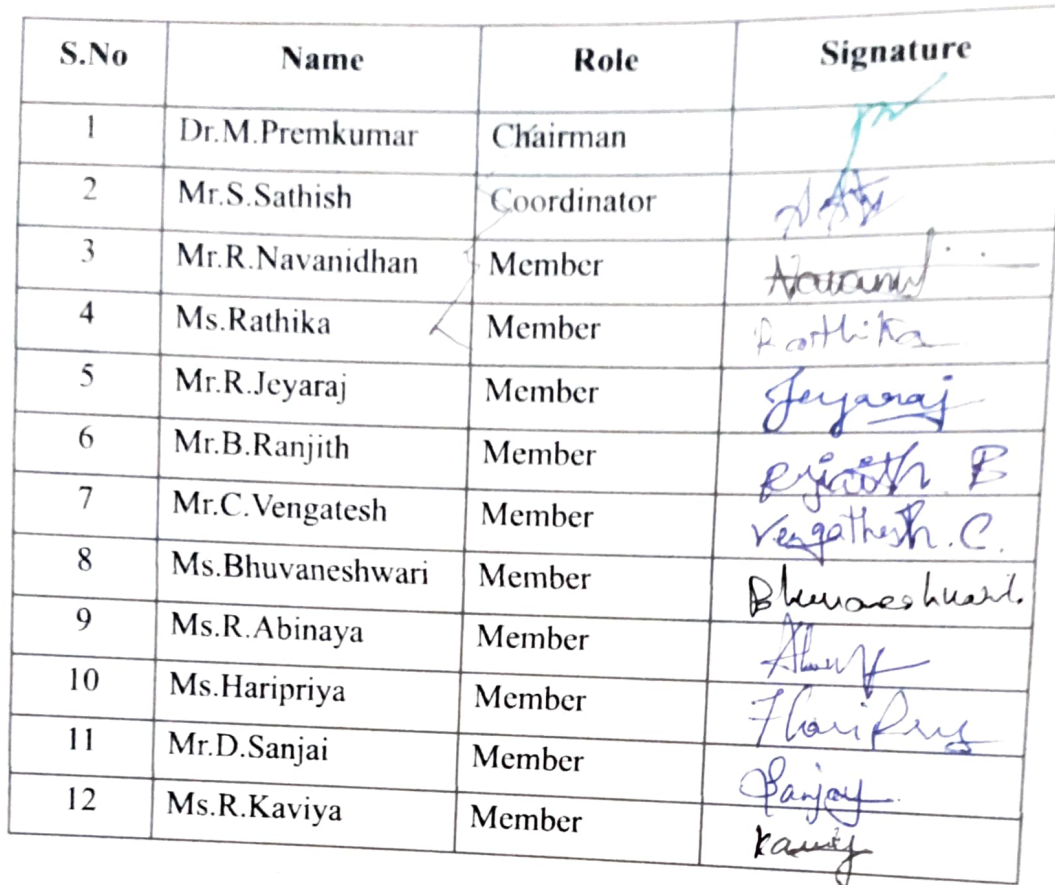 S.No Name Role Signature
1 Dr.M.Premkumar Chairman
2 Mr.S.Sathish Coordinator
3 Mr.R.Navanidhan Member
4 Ms.Rathika Member Rathika
5 Mr.R.Jeyaraj Member Jeyaraj
6 Mr.B.Ranjith Member B
7 Mr.C.Vengatesh Member Vengathesh.C.
8 Ms.Bhuvaneshwari Member Bhuvaneshwari.
9 Ms.R.Abinaya Member
10 Ms.Haripriya Member
11 Mr.D.Sanjai Member Sanjay
12 Ms.R.Kaviya Member